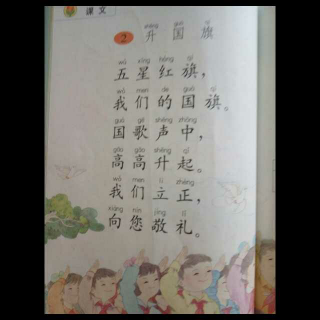 课文
shēng guó qí
2 升国旗
wǔ xīng hóng qí
五星红旗，
wǒ men de guó qí
我们的国旗。
guó gē shēng zhōng
国歌声中，
gāo gāo shēng qǐ
高高升起。
wǒ men lì zhèng
我们立正，
xiàng nín jìng lǐ
向您敬礼。